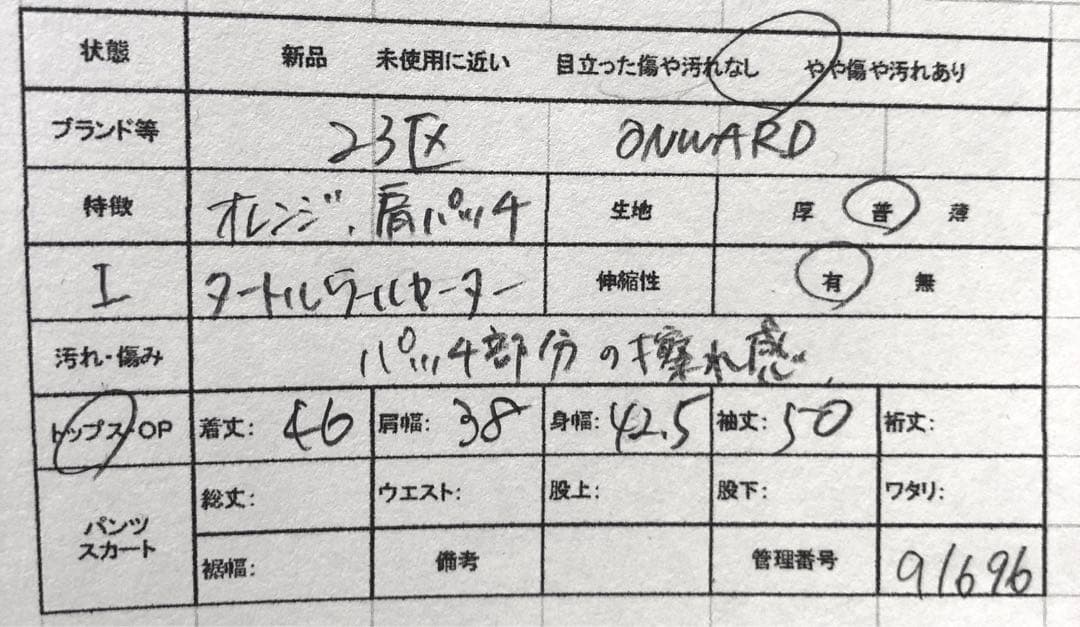 状態 新品 未使用に近い 目立った傷や汚れなし やや傷や汚れあり
ブランド等 23区 ONWARD
特徴 オレンジ、肩パッチ 生地 厚 普 薄
タートルウールセーター 伸縮性 有 無
汚れ・傷み パッチ部分の擦れ感
トップス・OP 着丈: 46 肩幅: 38 身幅: 42.5 袖丈: 50 裄丈:
パンツ スカート 総丈: ウエスト: 股上: 股下: ワタリ:
裾幅: 備考 管理番号 91696